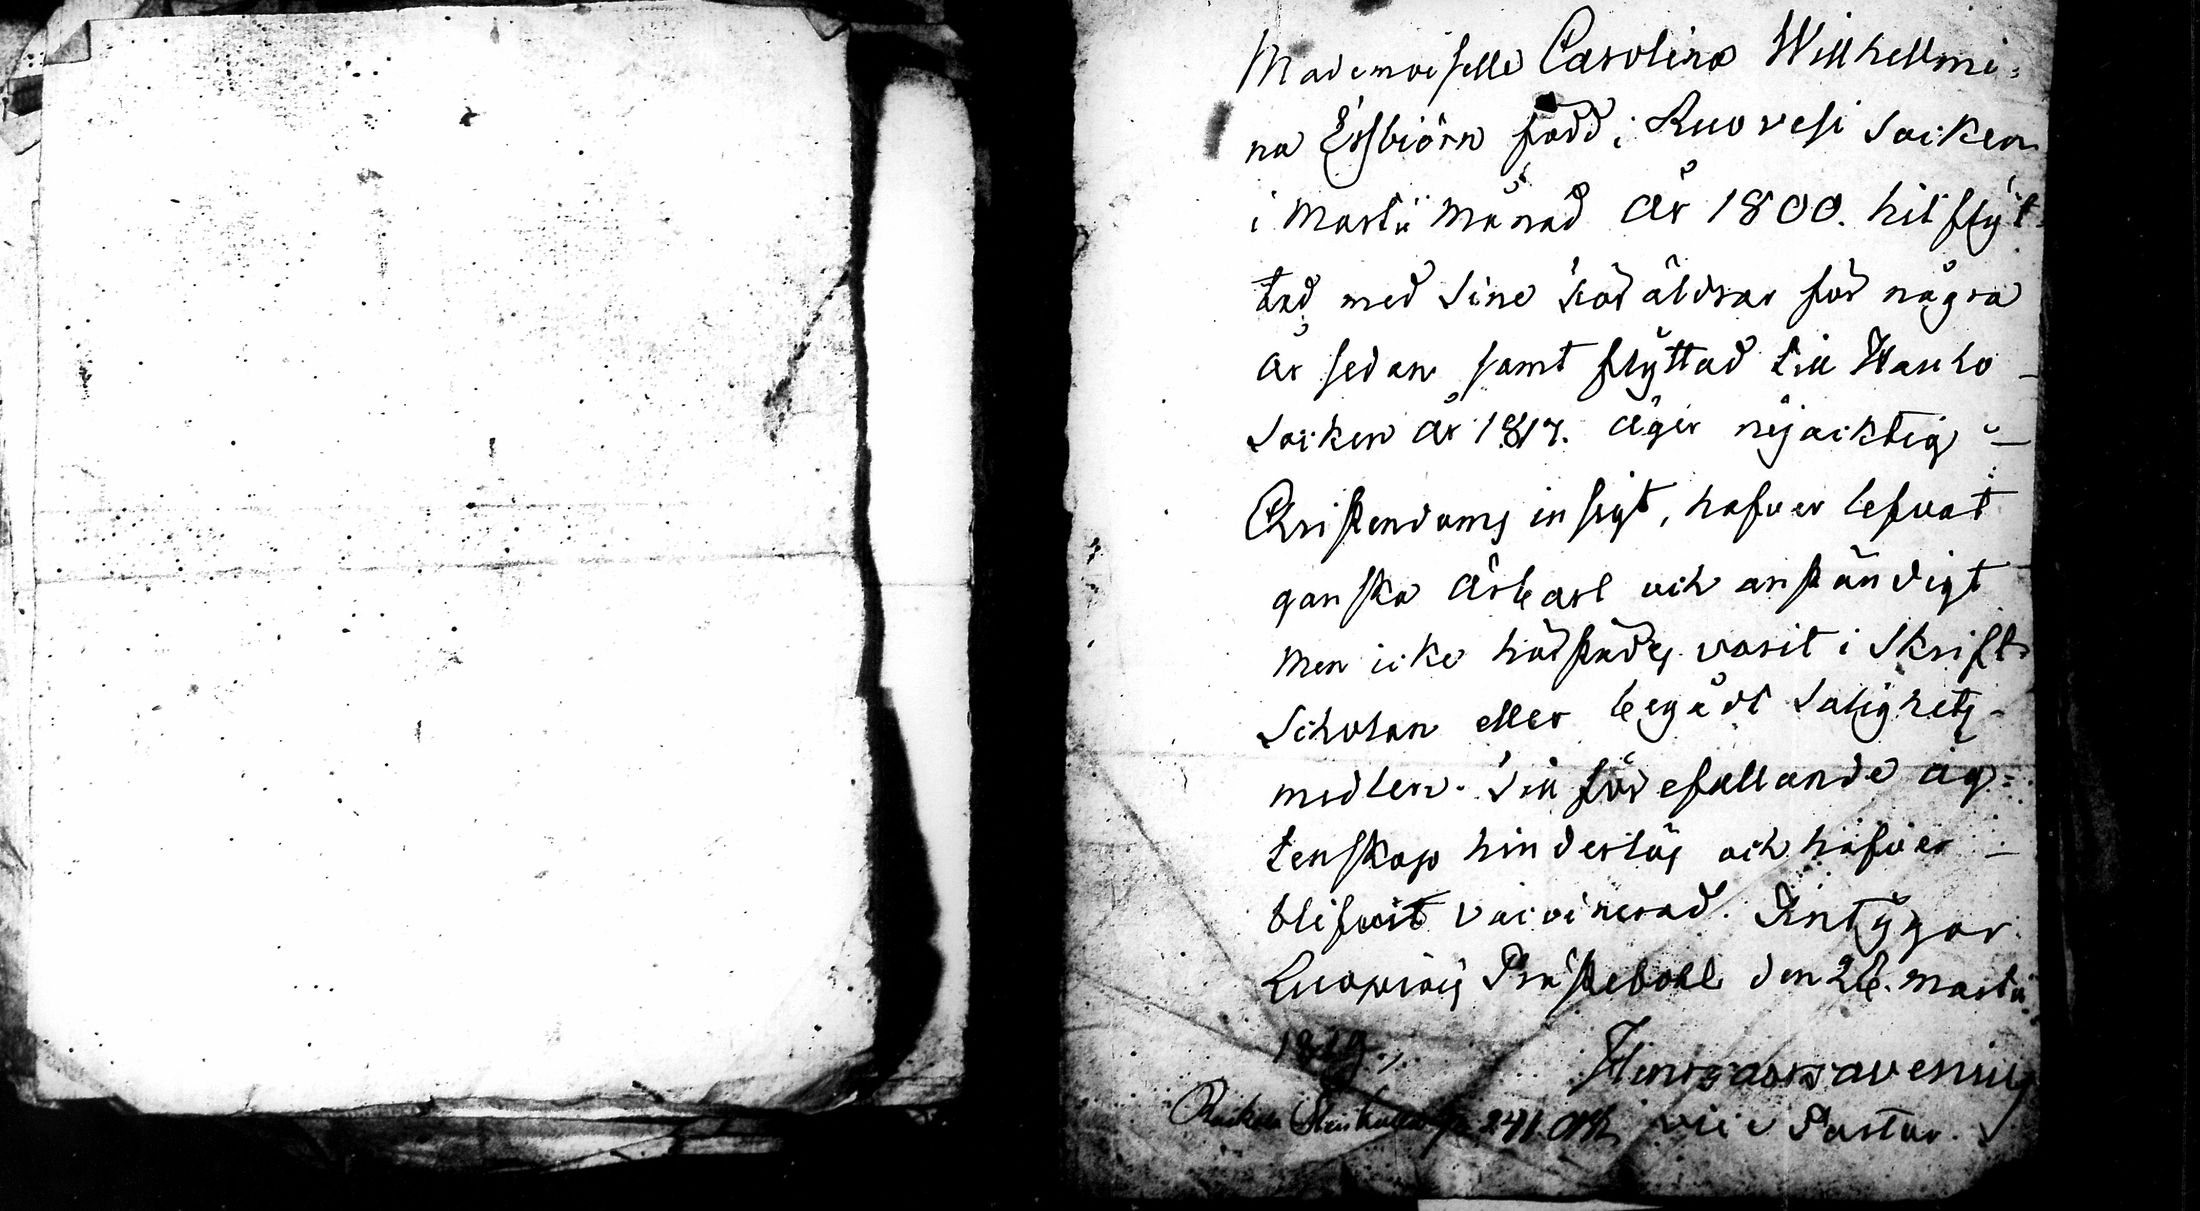 Mademoiselle Carolina Willhellmi-
na Esbiörn född i Ruovesi Socken
i Martii Månad År 1800. hit flyt-
tad med Sine Föräldrar för några
år sedan samt flyttad till Wauho
Socken År 1817. Äger nöjacktig
Christendoms insigt, hafver lefvat
ganska ärbart och anständigt
men icke härstädes varit i Skrift-
Scholan eller begådt Salighets-
medlen. Till förefallande äg-
tenskap hinderlös och hafver
blifwit vaccinerad. Intygar
Kuopiois Prästebohl den 26. Martii
1819.
vice Pastor.